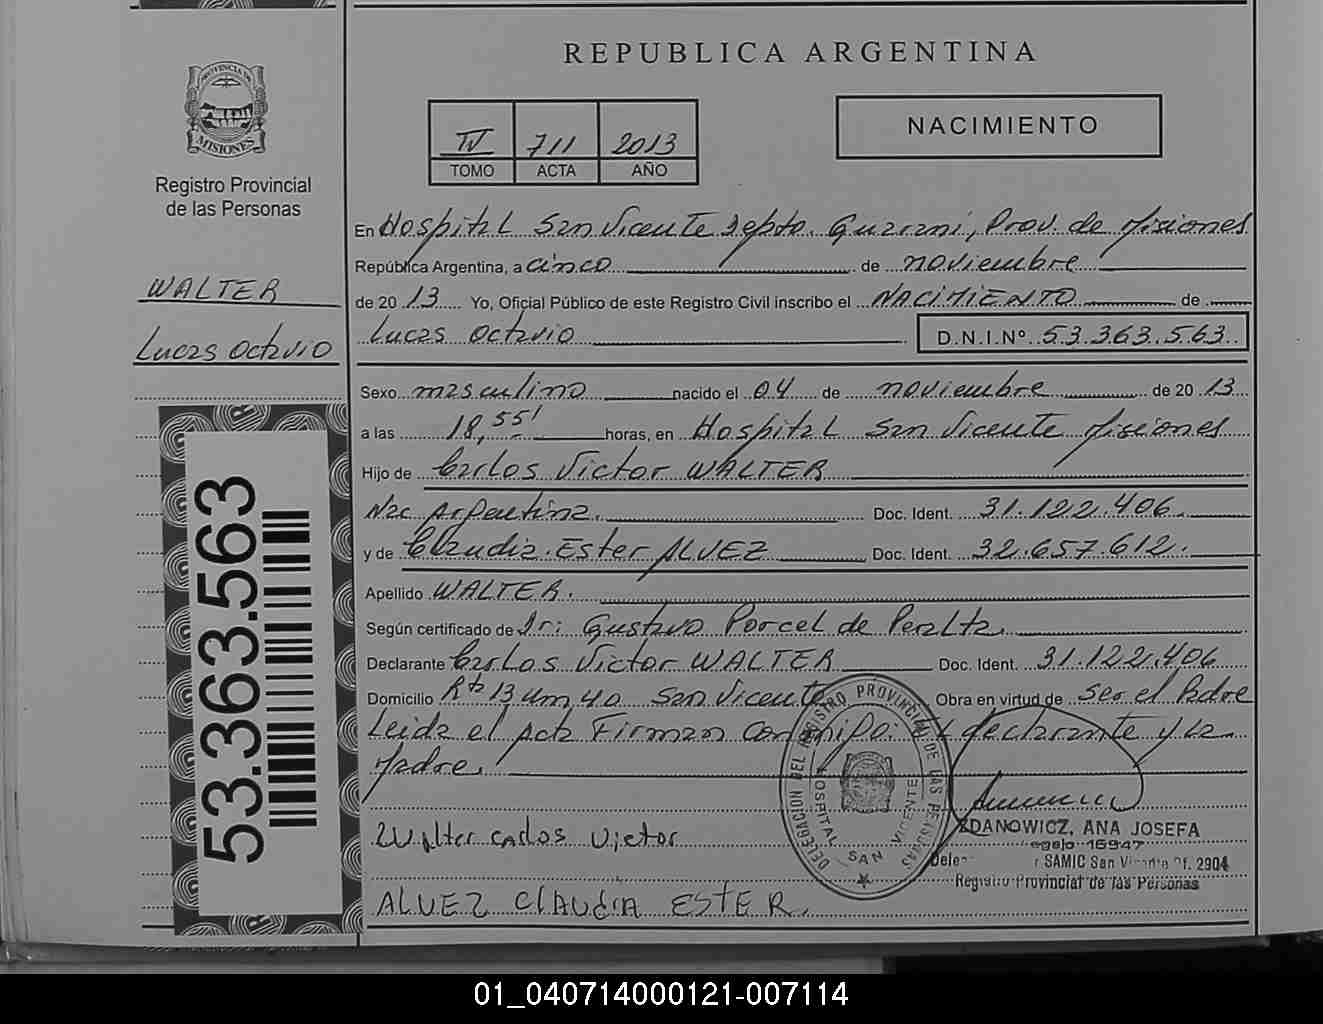 REPUBLICA ARGENTINA
PROVINCIA DE
MISIONES
Registro Provincial
de las Personas
IV 711 2013
TOMO ACTA AÑO
NACIMIENTO
WALTER
Lucas Octavio
53.363.563
En Hospital San Vicente Depto. Guarani, Prov. de Misiones
República Argentina, a cinco de noviembre
de 2013 Yo, Oficial Público de este Registro Civil inscribo el NACIMIENTO de
Lucas Octavio D.N.I.Nº 53.363.563
Sexo masculino nacido el 04 de noviembre de 2013
a las 18,55' horas, en Hospital San Vicente Misiones
Hijo de Carlos Victor WALTER
Nac Argentina. Doc. Ident. 31.122.406.
y de Claudia Ester ALVEZ Doc. Ident. 32.657.612.
Apellido WALTER.
Según certificado de Dr: Gustavo Porcel de Peralta.
Declarante Carlos Victor WALTER Doc. Ident. 31.122.406
Domicilio Rta 13 Km 40 San Vicente Obra en virtud de ser el Padre
Leida el Acta Firman conmigo. El declarante y la
Madre.
Walter Carlos Victor
ALVEZ CLAUDIA ESTER.
DELEGACION DEL REGISTRO PROVINCIAL DE LAS PERSONAS
HOSPITAL SAN VICENTE
ZDANOWICZ, ANA JOSEFA
16947
SAMIC San Vicente Of. 2904
Registro Provincial de las Personas
01_040714000121-007114